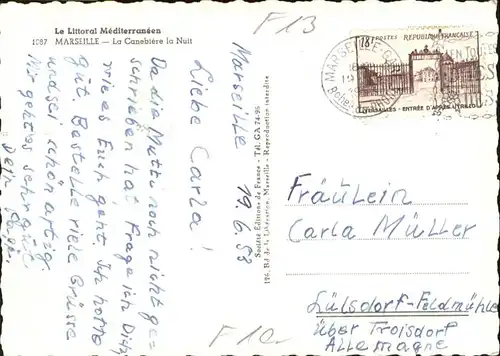 Le Littoral Méditerranéen
1087 MARSEILLE — La Canebière la Nuit
F 13
Marseille 19.6.53
Liebe Carla!
Da die Mutti noch nicht ge-
schrieben hat frage ich Dich
wie es Euch geht. Ich hoffe
gut. Bestelle viele Grüsse
und sei schön artig.
Mir geht es sehr gut
Dein
Société Éditions de France - Tél. GA 74-96
126, Bd de la Libération, Marseille - Reproduction interdite
POSTES REPUBLIQUE FRANÇAISE
18F
VERSAILLES - ENTRÉE D'APRÈS UTRILLO
MARSEILLE
Fräulein
Carla Müller
Lülsdorf-Feldmühle
über Troisdorf
Allemagne
F 10